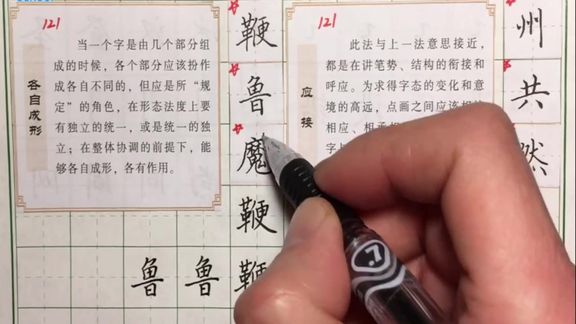 121
各自成形
当一个字是由几个部分组
成的时候，各个部分应该扮作
成各自不同的，但应是所“规
定”的角色，在形态法度上要
有独立的统一，或是统一的独
立；在整体协调的前提下，能
够各自成形，各有作用。
鞭
鲁
魔
鞭
鲁鲁鞭
121
应接
此法与上一法意思接近，
都是在讲笔势、结构的衔接和
呼应。为求得字态的变化和意
境的高远，点画之间应该相
相应、相承
字与
州
共
然